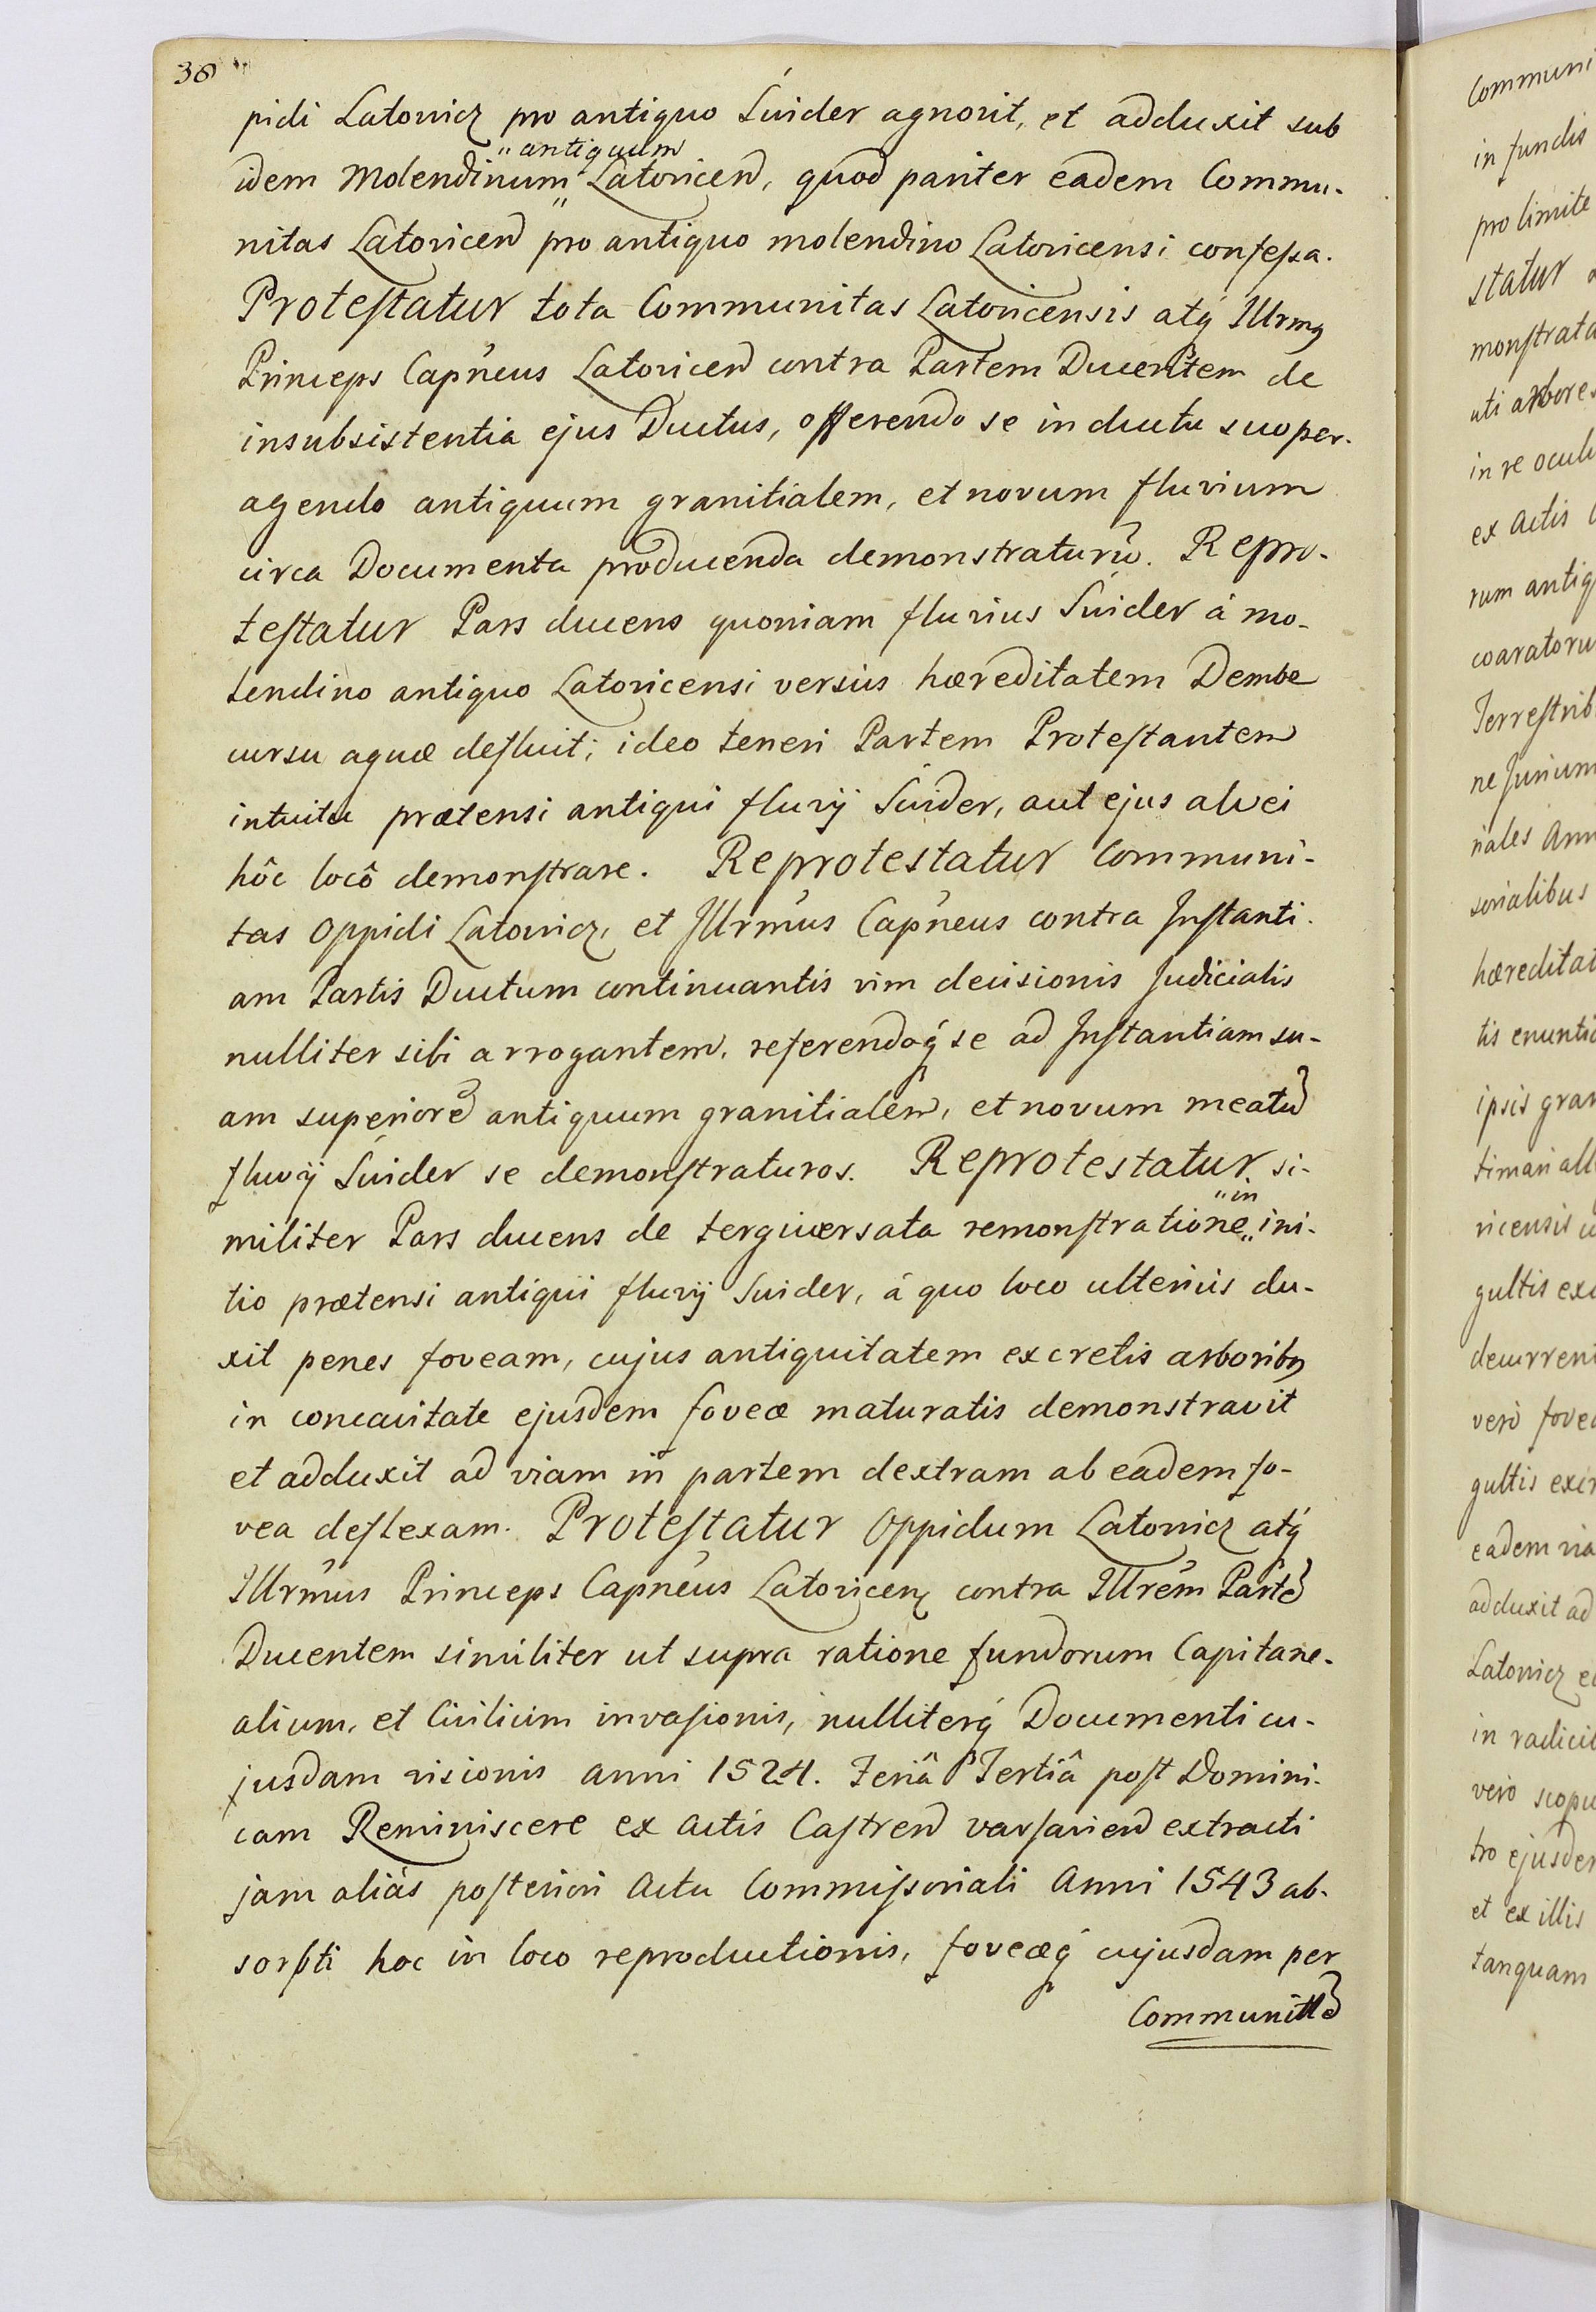 38
pidi Latowicz pro antiquo Suider agnovit, et adduxit sub
idem Molendinum "antiquum" Latovicen, quod pariter eadem Commu-
nitas Latovicen pro antiquo molendino Latovicensi confessa.
Protestatur tota Communitas Latovicensis atq́ Illrmg
Princeps Capneus Latovicen contra Partem Ducentem de
insubsistentia ejus Ductus, offerendo se in ductu suo per-
agendo antiquum granitialem, et novum fluvium
circa Documenta producenda demonstraturū. Repro-
testatur Pars ducens quoniam fluvius Suider á mo-
lendino antiquo Latovicensi versús hæreditatem Dembe
cursu aquæ defluit; ideo teneri Partem Protestantem
intuitu prætensi antiqui fluvij Suider, aut ejus alvei
hôc locô demonstrare. Reprotestatur Communi-
tas Oppidi Latowicz, et Illrmus Capneus contra Instanti-
am Partis Ductum continuantis vim decisionis Judicialis
nulliter sibi arrogantem, referendoq́ se ad Instantiam su-
am superiorē antiquum granitialem, et novum meatū
fluvij Suider se demonstraturos. Reprotestatur si-
militer Pars ducens de tergiversata remonstratione "in" ini-
tio prætensi antiqui fluvij Suider, á quo loco ulterius du-
xit penes foveam, cujus antiquitatem excretis arboribg
in concavitate ejusdem foveæ maturatis demonstravit
et adduxit ad viam in partem dextram ab eadem fo-
vea deflexam. Protestatur Oppidum Latowicz atq́
Illrmus Princeps Capneus Latovicen contra Illrem Partē
Ducentem similiter ut supra ratione fundorum Capitane-
alium, et Civilium invasionis, nulliterq́ Documenti cu-
jusdam visionis anni 1524. Feriâ Tertiâ post Domini-
cam Reminiscere ex actis Castren varsavien extracti
jam aliás posteriori Actu Commissoriali Anni 1543 ab-
sorpti hoc in loco reproductionis, foveæq́ cujusdam per
Communittē
Communi
in fundis
pro limite
statur
monstrata
uti arbores
in re ocul
ex actis
rum antiq
coaratoru
Terrestrib
ne Jurium
riales Ann
sorialibus
hæreditat
tis enuntia
ipsis gran
timari all
vicensis
gultis exc
decurren
verò fove
gultis exc
eadem via
adduxit ad
Latowicz
in radici
vero scopu
tro ejusdem
et ex illis
tanquam